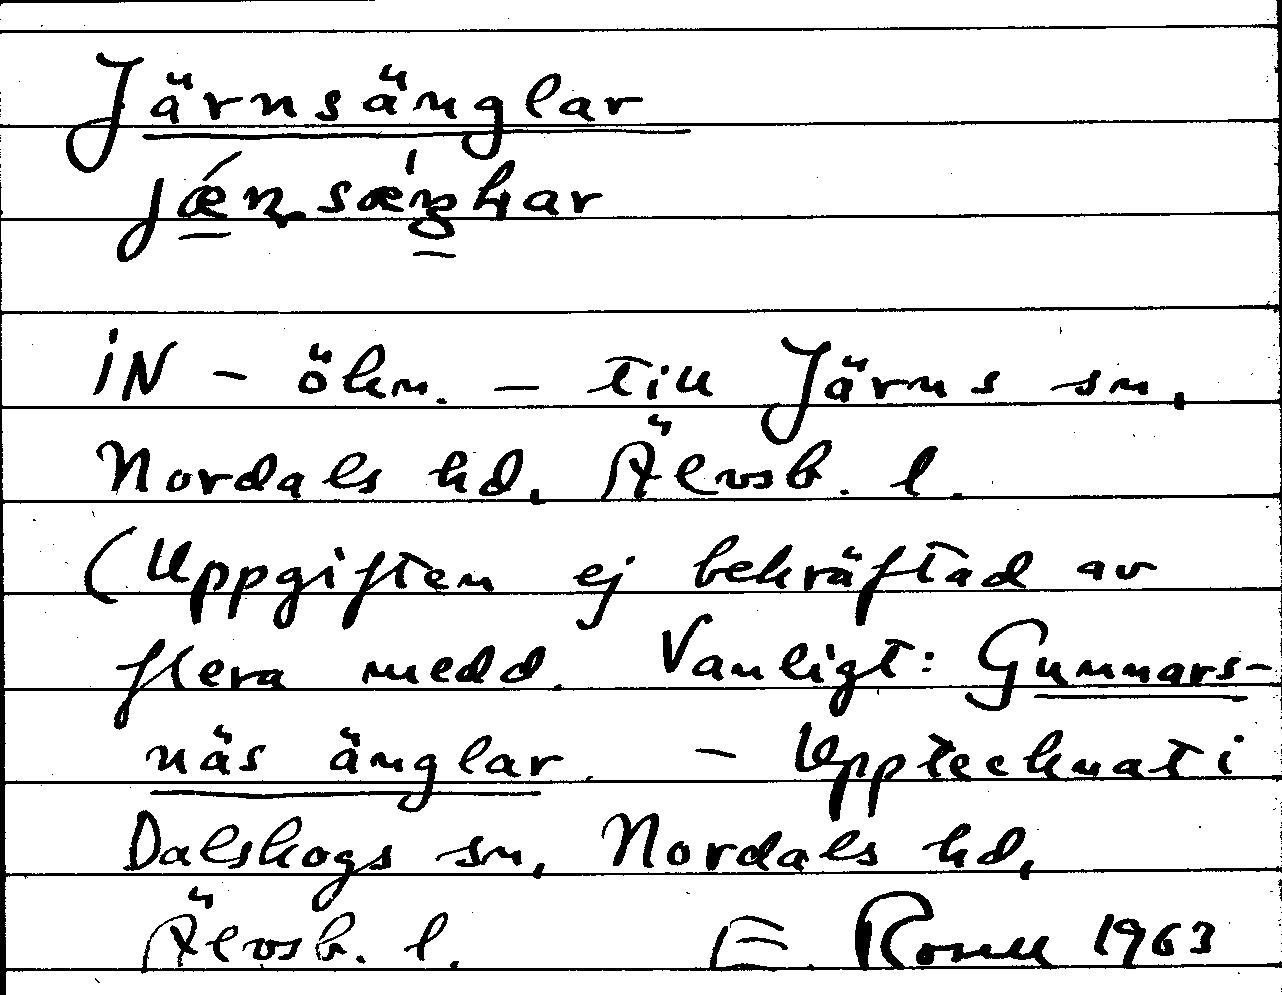 Järnsänglar
iN - ökn. - till Järns sn,
Nordals hd, Älvsb. l.
(Uppgiften ej bekräftad av
flera medd. Vanligt: Gunnars-
näs änglar. - Upptecknat i
Dalskogs sn, Nordals hd,
Älvsb. l. E. Rosell 1963